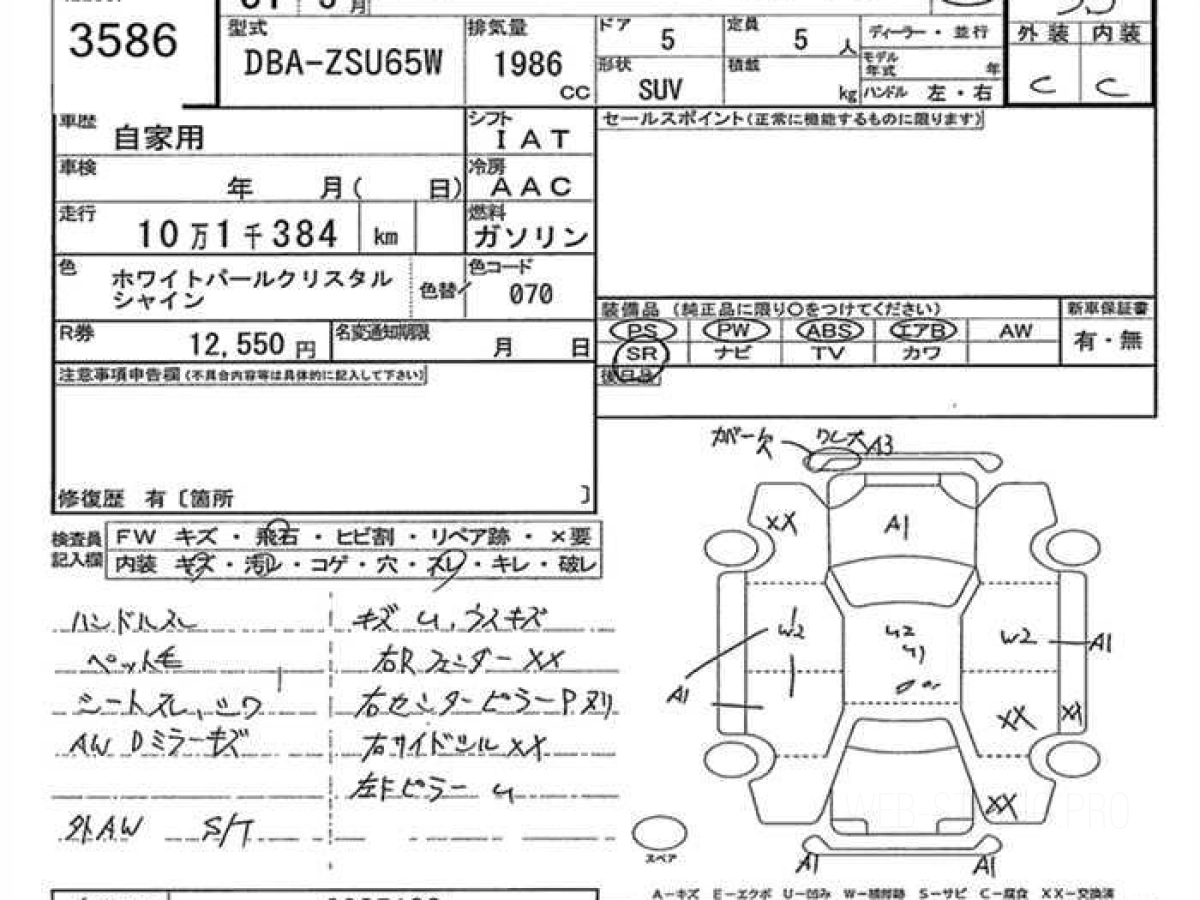 3586
型式
DBA-ZSU65W
排気量
1986
CC
ドア
5
定員
5
人
ディーラー・並行
外装
内装
形状
SUV
積載
kg
モデル
年式
年
ハンドル 左・右
C
C
車歴
自家用
シフト
IAT
セールスポイント(正常に機能するものに限ります)
車検
年 月( 日)
冷房
AAC
走行
10万1千384 km
燃料
ガソリン
色
ホワイトパールクリスタル
シャイン
色替
色コード
070
装備品 (純正品に限り○をつけてください)
新車保証書
PS
PW
ABS
エアB
AW
有・無
SR
ナビ
TV
カワ
R券
12,550 円
名変通知期限
月 日
注意事項申告欄(不具合内容等は具体的に記入して下さい)
後日品
修復歴 有〔箇所 〕
検査員
記入欄
FW キズ・飛石・ヒビ割・リペア跡・×要
内装 キズ・汚レ・コゲ・穴・スレ・キレ・破レ
ハンドルスレ
ペット毛
シートスレ、シワ
AW Dミラーキズ
外AW S/T
キズ U、ウスキズ
右Rフェンダー XX
右センターピラーPヌリ
右サイドシル XX
左Fピラー U
カバー欠
ワレ大
A3
XX
A1
W2
U2
U1
W2
A1
A1
XX
XX
XX
A1
A1
スペア
A-キズ E-エクボ U-凹み W-補修跡 S-サビ C-腐食 XX-交換済
WEB STYLE PRO